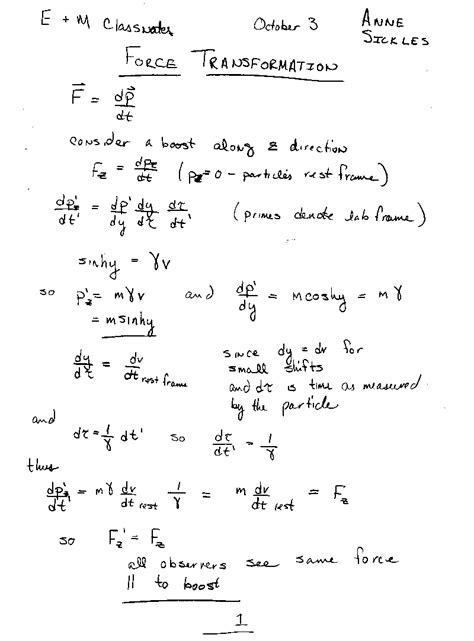 E + M Classnotes October 3 ANNE SICKLES
FORCE TRANSFORMATION
F⃗ = dp⃗/dt
consider a boost along z direction
F_z = dp_z/dt (p_z=0 - particles rest frame)
dp'_z/dt' = dp'/dy dy/dτ dτ/dt' (primes denote lab frame)
sinhy = γv
so p'_z = mγv and dp'/dy = mcoshy = mγ
= msinhy
dy/dτ = dv/dt rest frame since dy = dv for
small shifts
and dτ is time as measured
by the particle
and
dτ = 1/γ dt' so dτ/dt' = 1/γ
thus
dp'_z/dt' = mγ dv/dt rest 1/γ = m dv/dt rest = F_z
so F_z' = F_z
all observers see same force
|| to boost
1